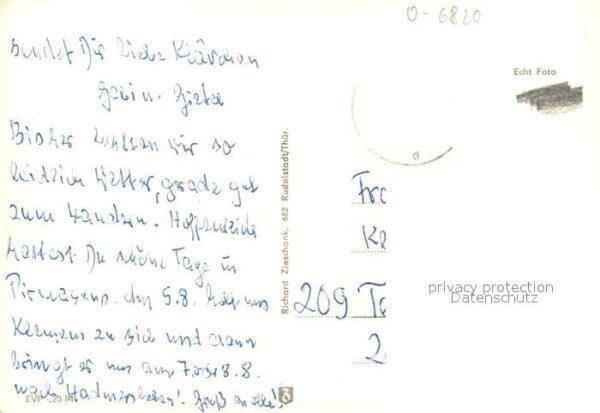 O-6820
Echt Foto
sendet Dir liebe Klärchen
Bisher hatten wir so
leidlich Wetter, grade gut
zum Wandern. Hoffentlich
hattest Du schöne Tage in
Pirmasens. Am 5.8. holt uns
Hermann zu sich und dann
bringt er uns am 7. oder 8.8.
nach Hadmersleben! Gruß an alle!
EVP -.20 M
Richard Zieschank, 682 Rudolstadt/Thür.
209
privacy protection
Datenschutz